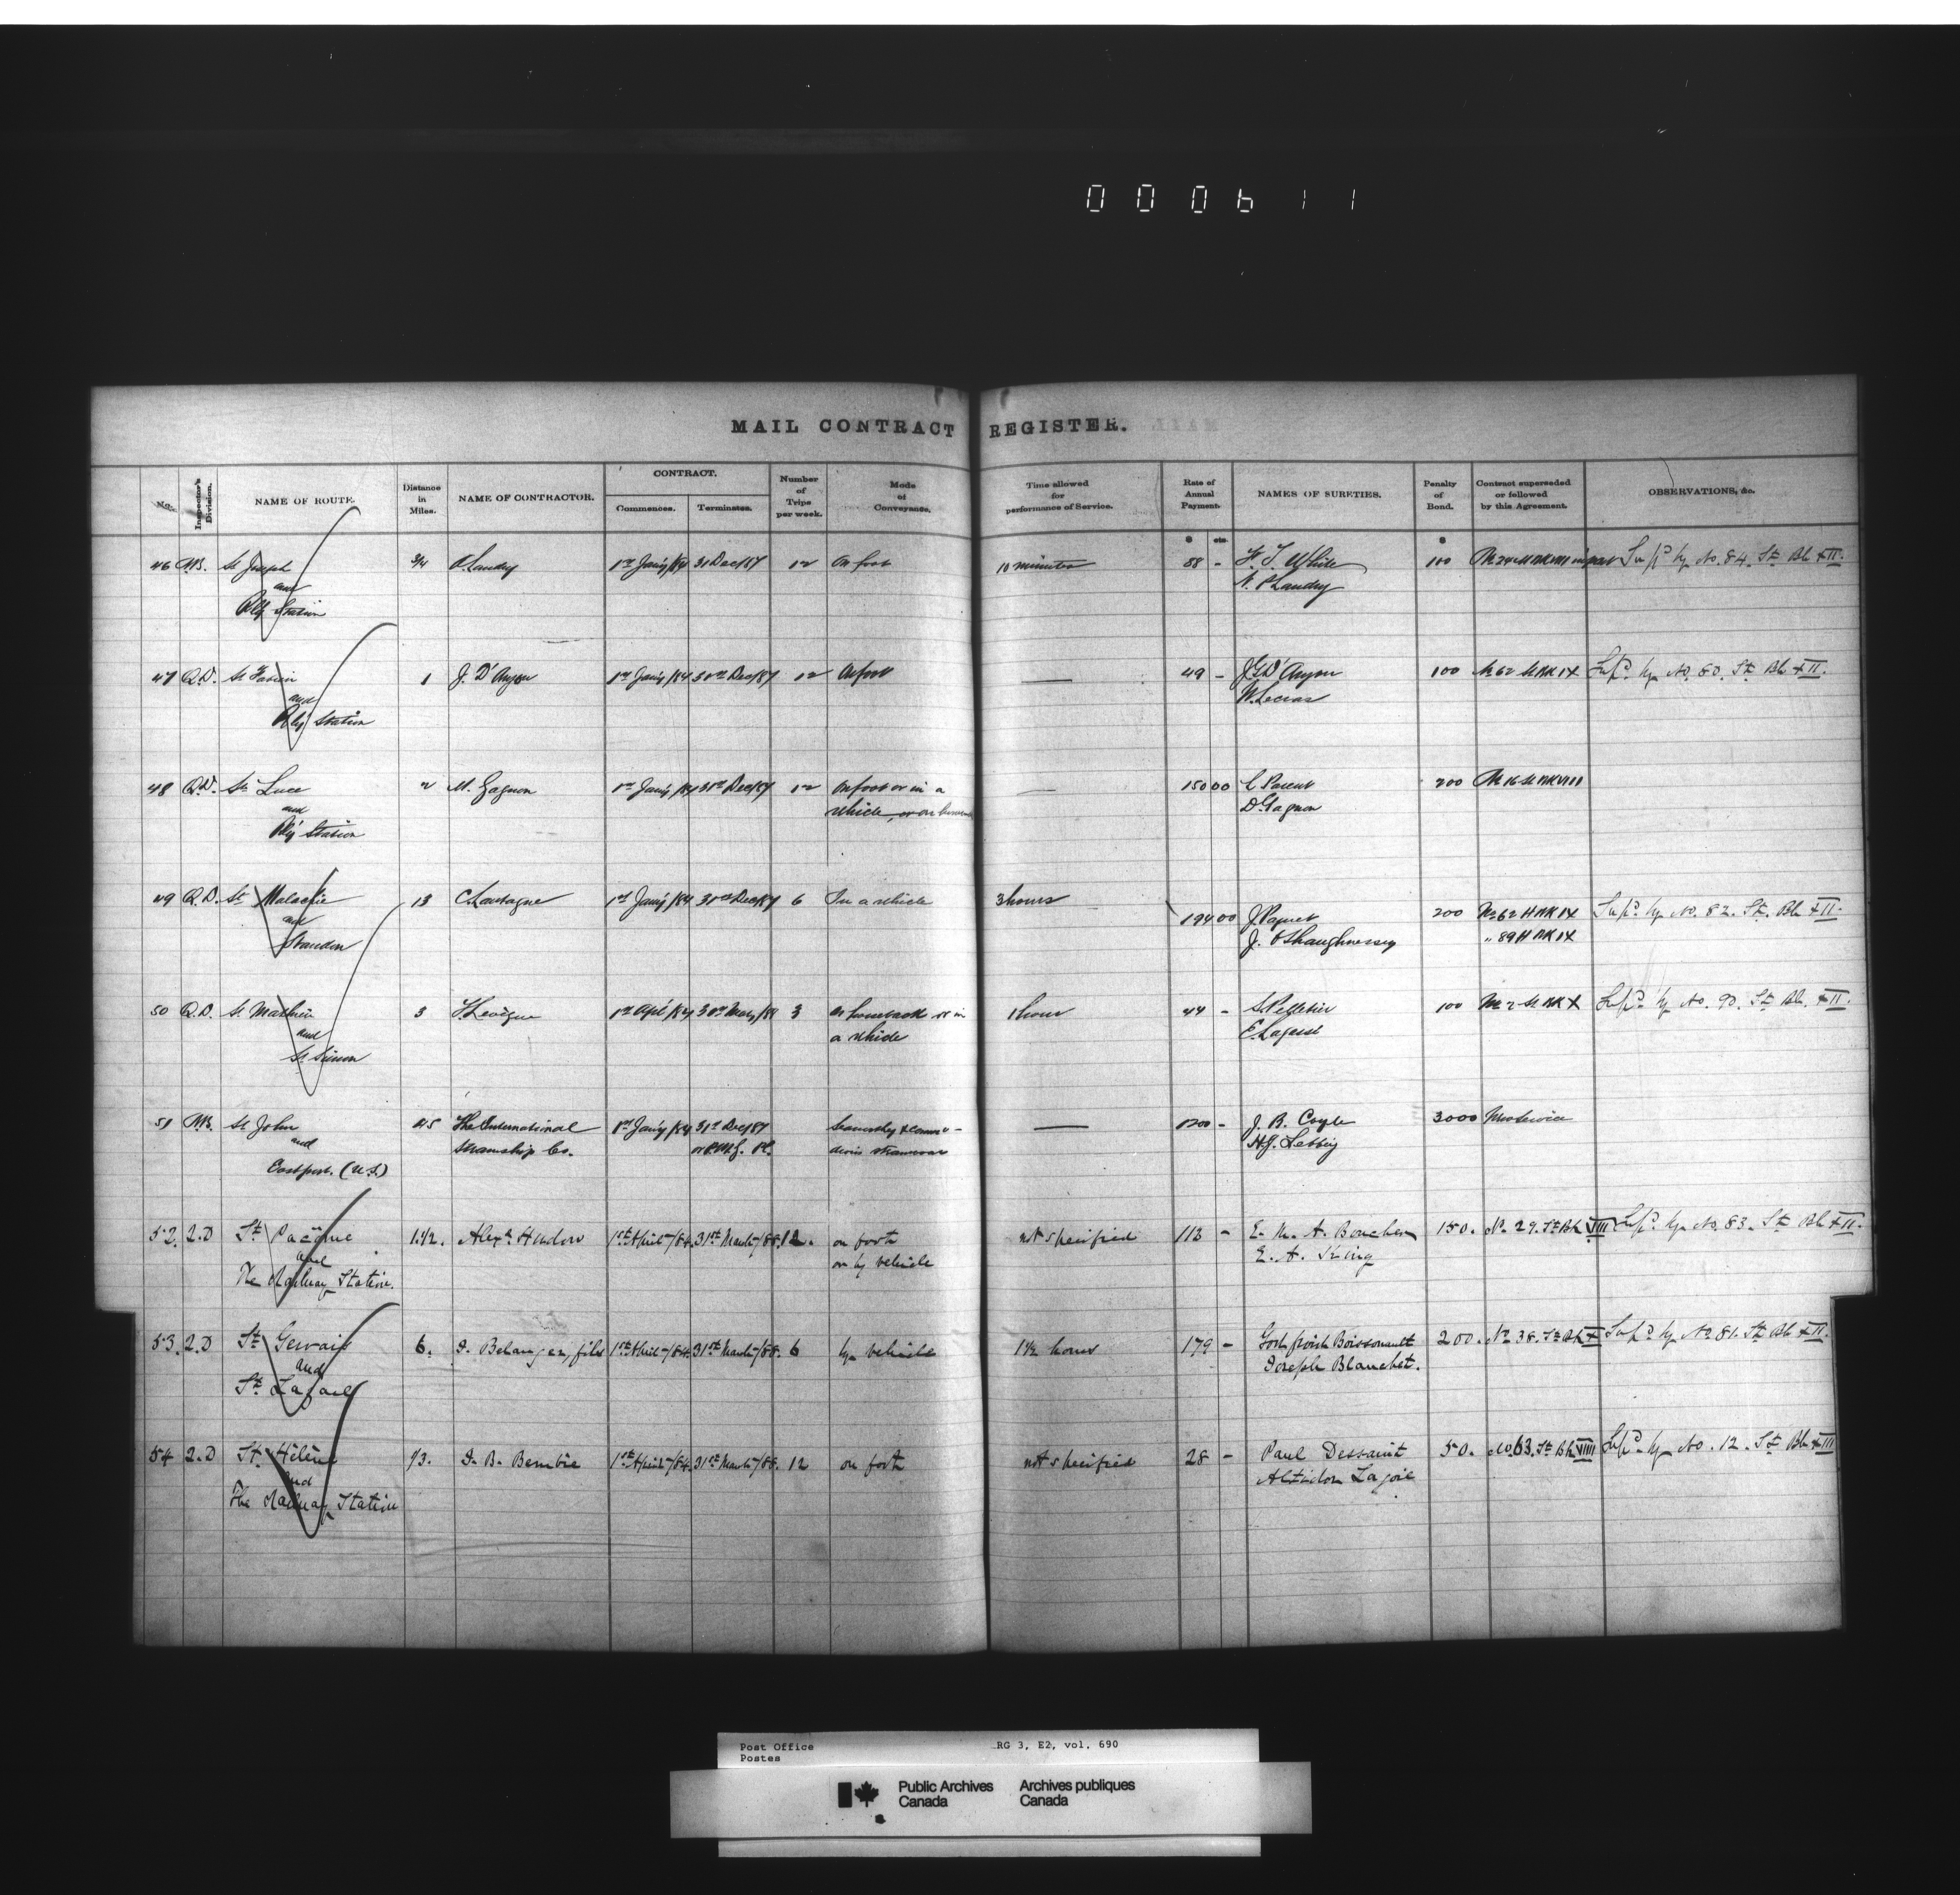 000611
MAIL CONTRACT REGISTER.
No. Inspector's Division. NAME OF ROUTE. Distance in Miles. NAME OF CONTRACTOR. CONTRACT. Commences. Terminates. Number of Trips per week. Mode of Conveyance. Time allowed for performance of Service. Rate of Annual Payment. NAMES OF SURETIES. Penalty of Bond. Contract superseded or followed by this Agreement. OBSERVATIONS, &c.
$ cts. $
46 St Joseph 3/4 Landry 1st Jan'y/84 31 Dec/87 12 On foot 10 minutes 88 - White 100 in part Sup'd by No. 84. St Bk XII.
and Landry
Rly Station
47 Q.D. St Fabien 1 J. D'Anjou 1st Jan'y/84 31st Dec/87 12 On foot — 49 - D'Anjou 100 No 62 St BK IX Sup'd by No. 80. St Bk XII.
and
Rly Station
48 Q.D. St Luce 2 M. Gagnon 1st Jan'y/84 31st Dec/87 12 On foot or in a — 150 00 C Parent 200 No 16 St BK VIII
and vehicle, or on D. Gagnon
Rly Station
49 Q.D. St Malachie 13 1st Jan'y/84 31st Dec/87 6 In a vehicle 3 hours 194 00 J. Paquet 200 No 62 H BK IX Sup'd by No. 82. St. Bk XII.
and J. O'Shaughnessy " 89 H BK IX
Standon
50 Q.D. St Mathieu 3 1st Apl/84 31st Mar/88 3 On horseback or in 1 hour 44 - S. Pelletier 100 No 2 St BK X Sup'd by No. 90. St Bk. XII.
and a vehicle E. Lagacé
St Simon
51 St John The International 1st Jan'y/84 31st Dec/87 — 1200 - J. B. Coyle 3000 New Service
and Steamship Co. or P.M.G. Pl.
Eastport. (U.S.)
52. 2.D St Pacôme 1 1/2. Alexr Hudon 1st April/84. 31st March/88. 12. on foot not specified 112 - E. A. Boucher 150. No. 29. St Bk VIII Sup'd by No. 83. St Bk XII.
and or by vehicle E. A. King
The Railway Station.
53. 2.D St Gervais 6. Belanger, fils 1st April/84. 31st March/88. 6 by vehicle 1 1/2 hours 179 - Boissonault 200. No. 38. St Bk X Sup'd by No 81. St Bk XII.
and Joseph Blanchet.
St
54 2.D St. Hélène 1/3. B. 1st April/84. 31st March/88. 12 on foot not specified 28 - Paul Dessaint 50. No. 63. St Bk VIIII Sup'd by No. 12. St Bk XIII
and Lajoie
The Railway Station
Post Office RG 3, E2, vol. 690
Postes
Public Archives Archives publiques
Canada Canada